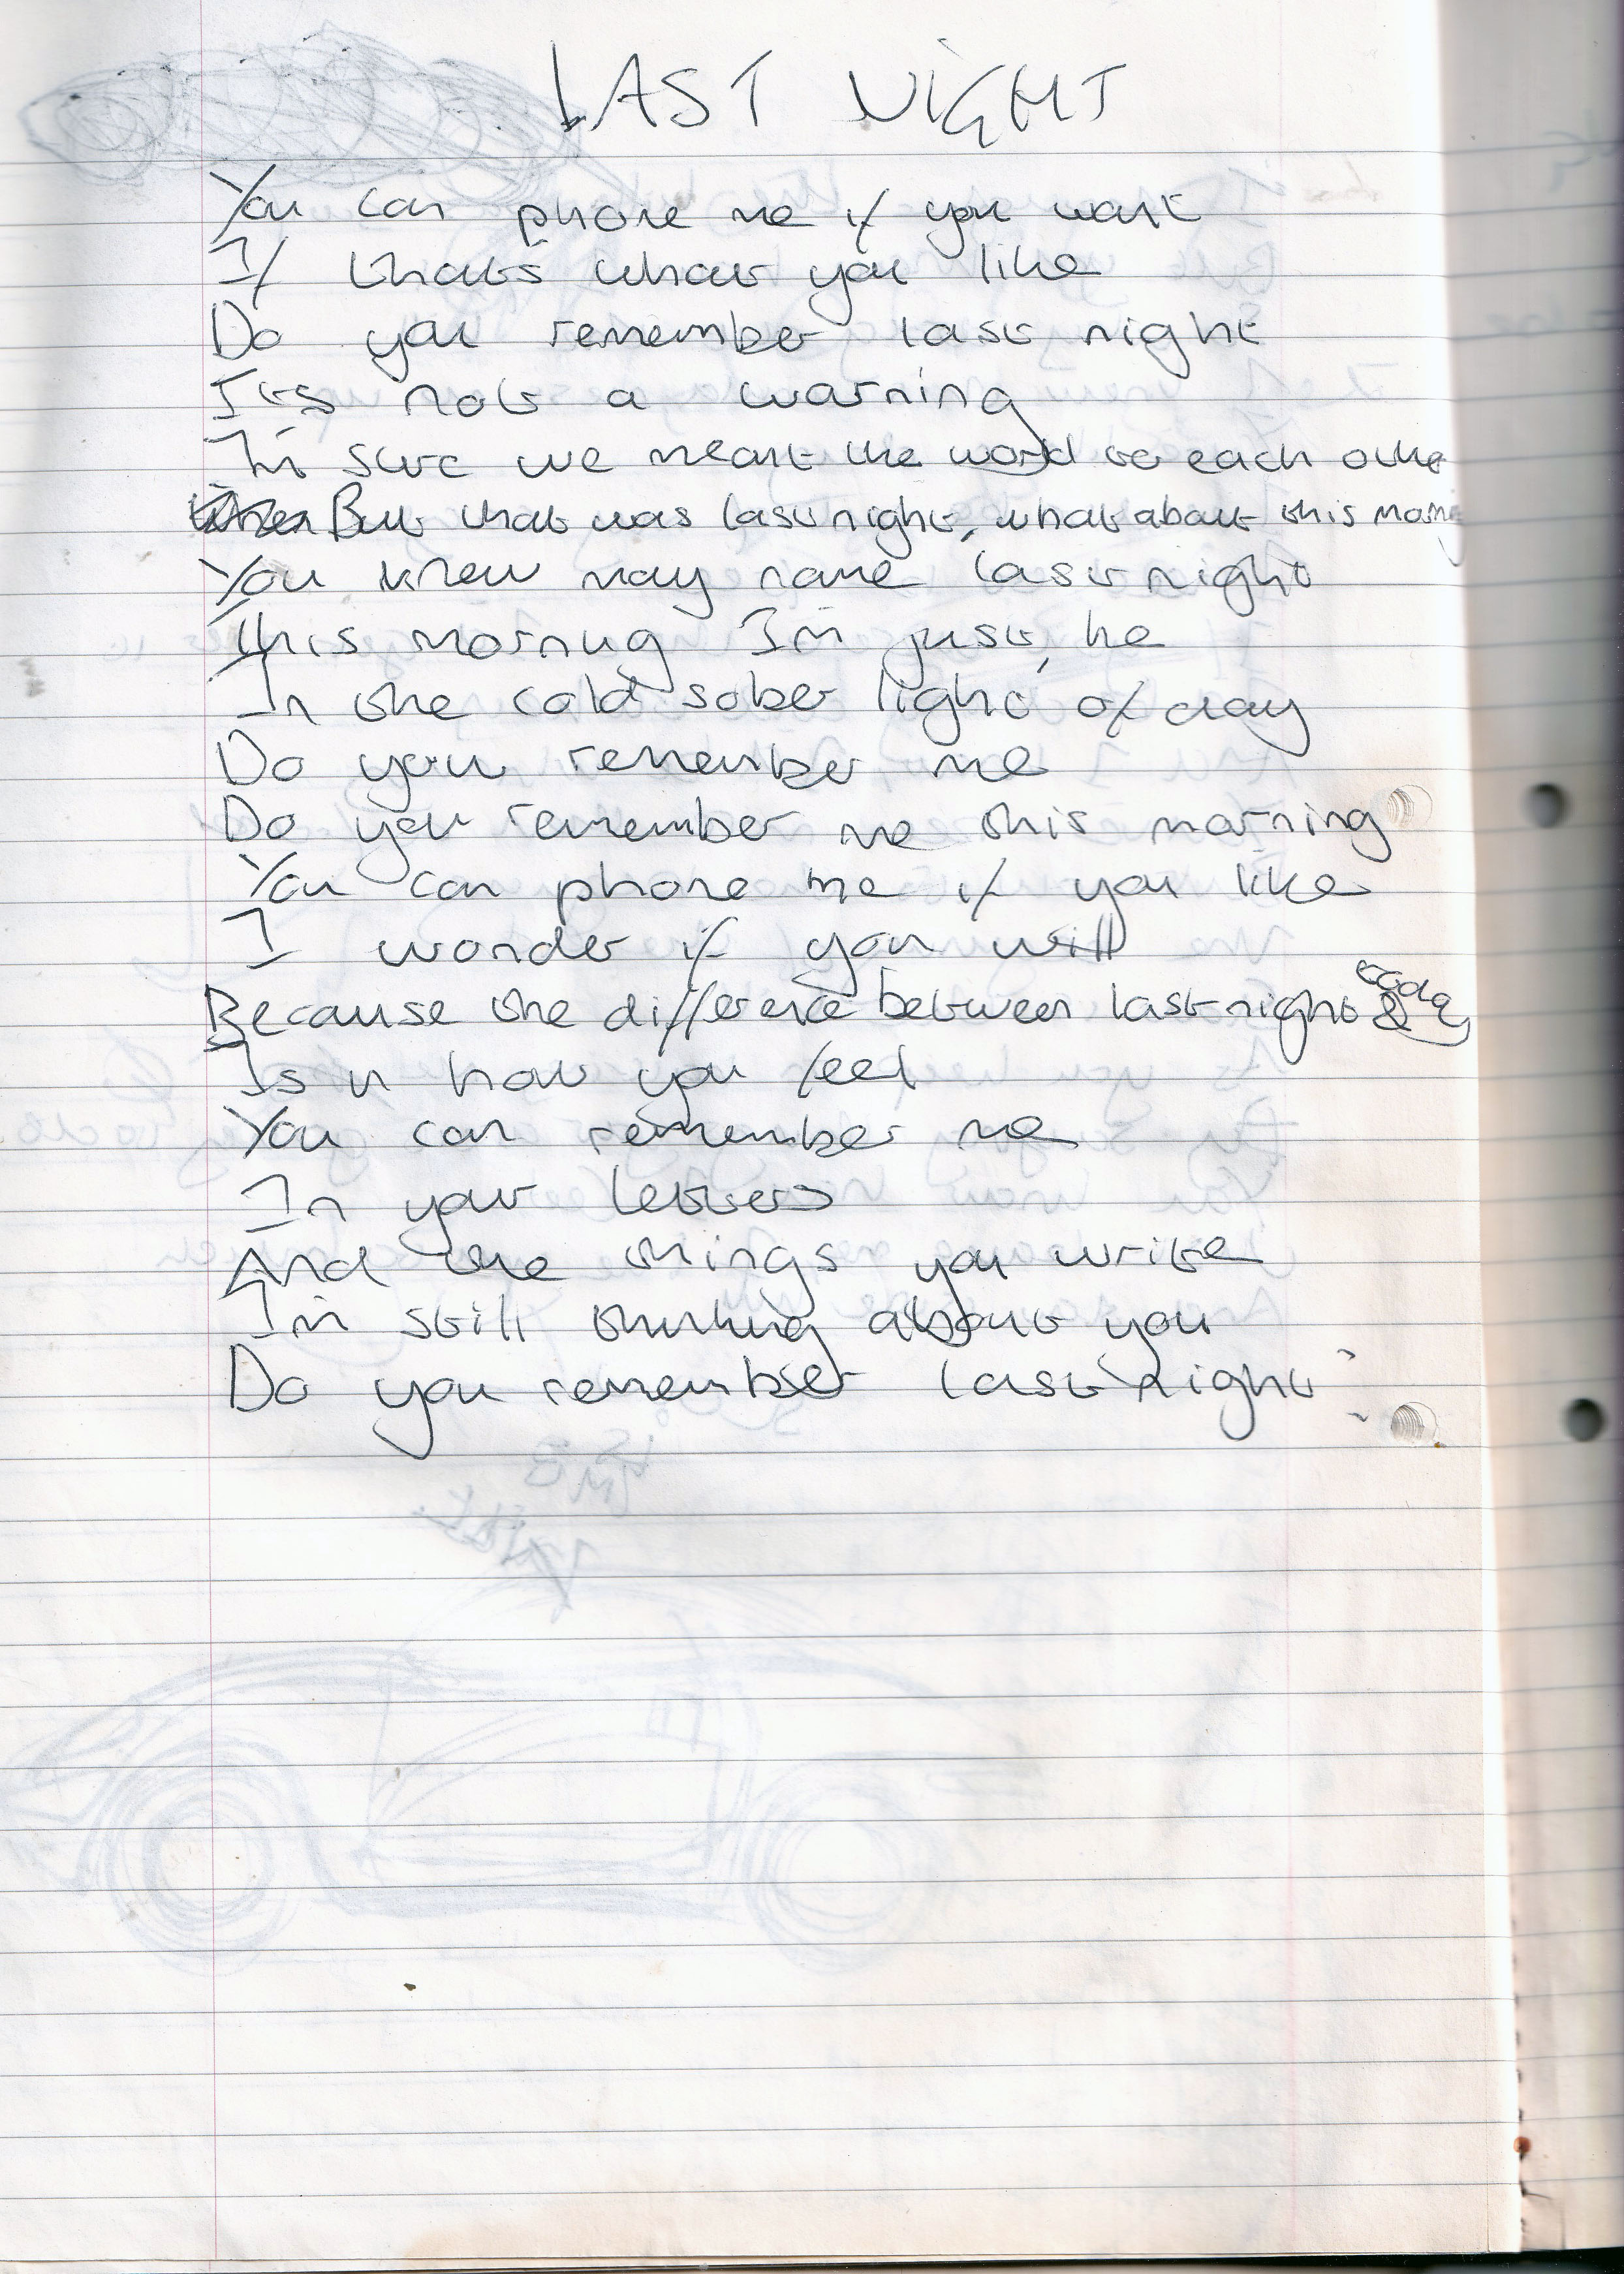 LAST NIGHT
You can phone me if you want
If thats what you like
Do you remember last night
It's not a warning
I'm sure we meant the world to each other
But that was last night, what about this morning
You knew may name last night
This mornug I'm just, he
In the cold sober light of day
Do you remember me
Do you remember me this morning
You can phone me if you like
I wonder if you will
Because the difference between last night & today
Is in how you feel
You can remember me
In your letters
And the things you write
I'm still thinking about you
Do you remember last night?